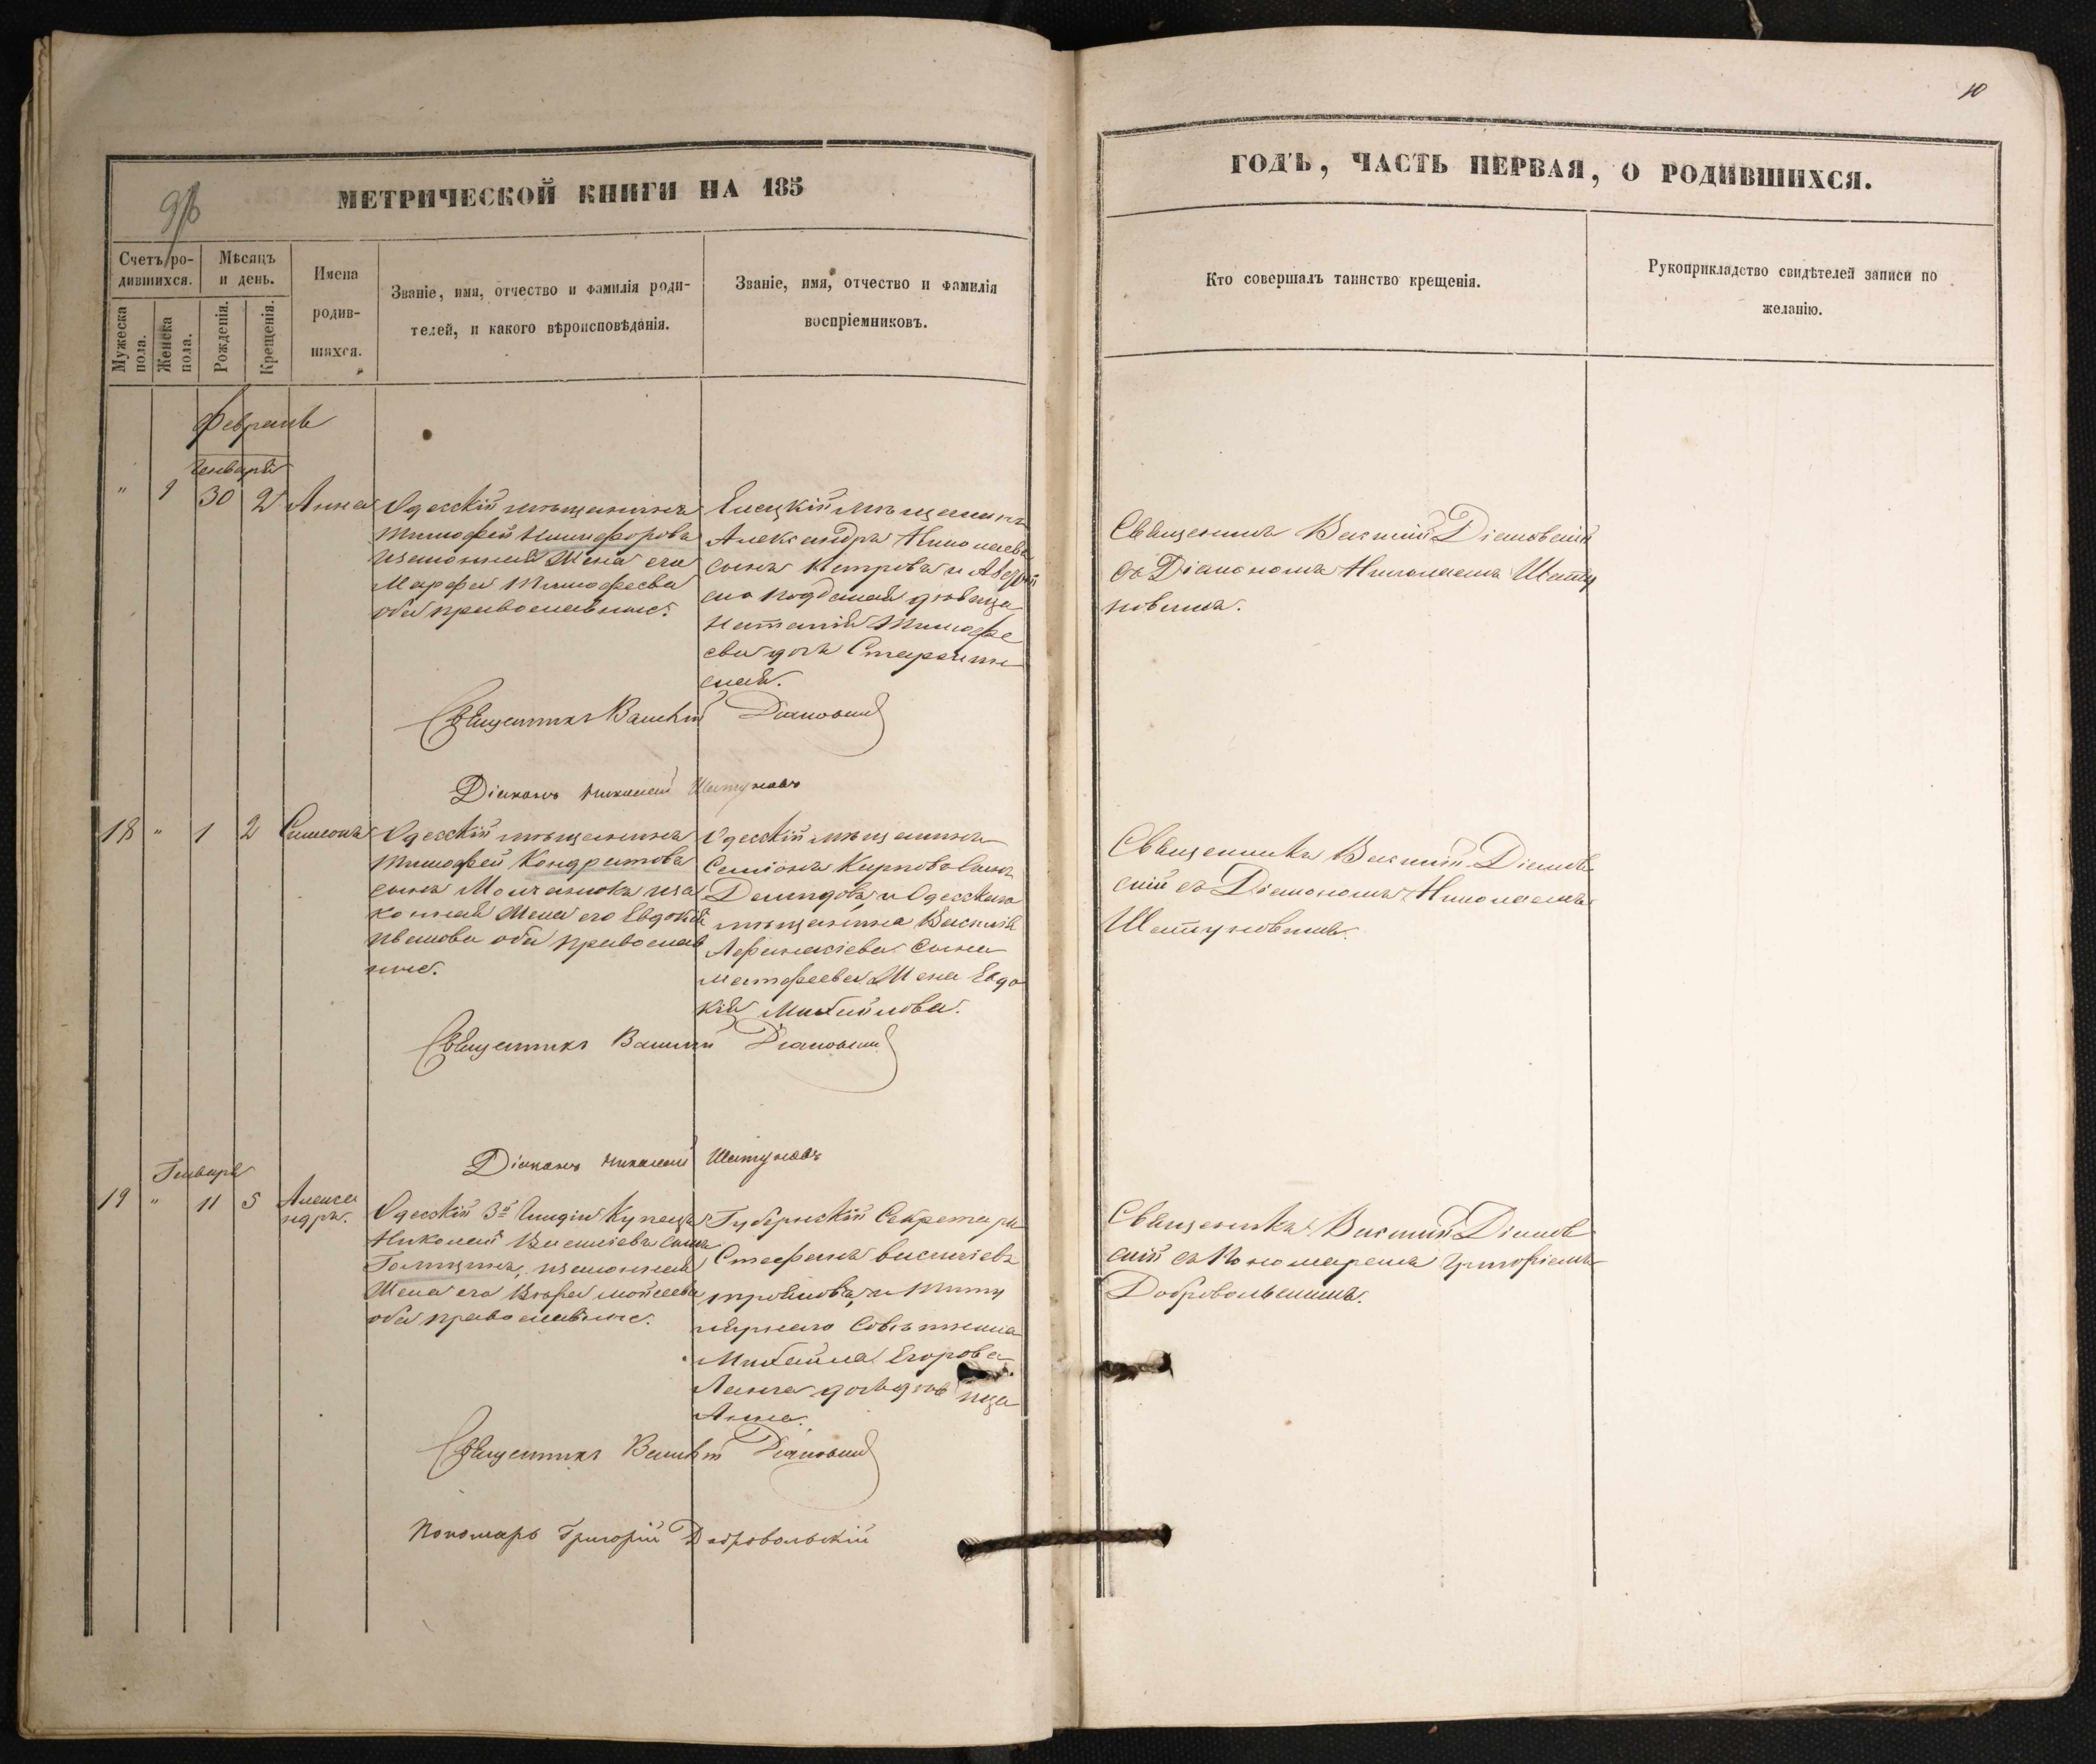 10
МЕТРИЧЕСКОЙ КНИГИ НА 185
ГОДЪ, ЧАСТЬ ПЕРВАЯ, О РОДИВШИХСЯ.
Счетъ ро-
дившихся.
Мѣсяцъ
и день.
Имена
родив-
шихся.
Мужеска
пола.
Женска
пола.
Рожденія.
Крещенія.
Званіе, имя, отчество и фамилія роди-
телей, и какого вѣроисповѣданія.
Званіе, имя, отчество и фамилія
воспріемниковъ.
Кто совершалъ таинство крещенія.
Рукоприкладство свидѣтелей записи по
желанію.
Февраль
Генваря
" 9 30 2 Анна
Одесскій мѣщанинъ
Тимофей Никифоровъ
законная Жена его
Марфа Тимофеева
оба православные.
Елецкій мѣщанинъ
Александръ Николаевъ
сынъ Петровъ и Австрій
ско подданая дѣвица
Наталія Тимофе
ева дочь
ская.
Священникъ Василій Діановскій
съ Діакономъ Николаемъ Шату
новымъ.
Священникъ Василій Діановскій
Діаконъ Николай Шатуновъ
18 " 1 2 Симеонъ
Одесскій мѣщанинъ
Тимофей Кондратовъ
сынъ Молчановъ за
конная Жена его Евдокія
Иванова оба православ
ные.
Одесскій мѣщанинъ
Семіонъ Карповъ Сынъ
Демидовъ и Одесскаго
мѣщанина Василія
Афанасіева Сына
Матфеева Жена Евдо
кія Михайлова.
Священникъ Василій Діановс
скій съ Діакономъ Николаемъ
Шатуновымъ.
Священникъ Василій Діановскій
Діаконъ Николай Шатуновъ
Генваря
19 " 11 5 Алекса
ндръ.
Одесскій 3й Гилдіи Купецъ
Николай Василіевъ Сынъ
Голицынъ, законная
Жена его Моисеева
оба православные.
Губернскій Секретарь
Стефанъ Василіевъ
и Титу
лярнаго Совѣтника
Михаила Егорова
дочь дѣвица
Анна.
Священникъ Василій Діанов
скій съ Пономаремъ Григоріемъ
Добровольскимъ.
Священникъ Василій Діановскій
Пономарь Григорій Добровольскій